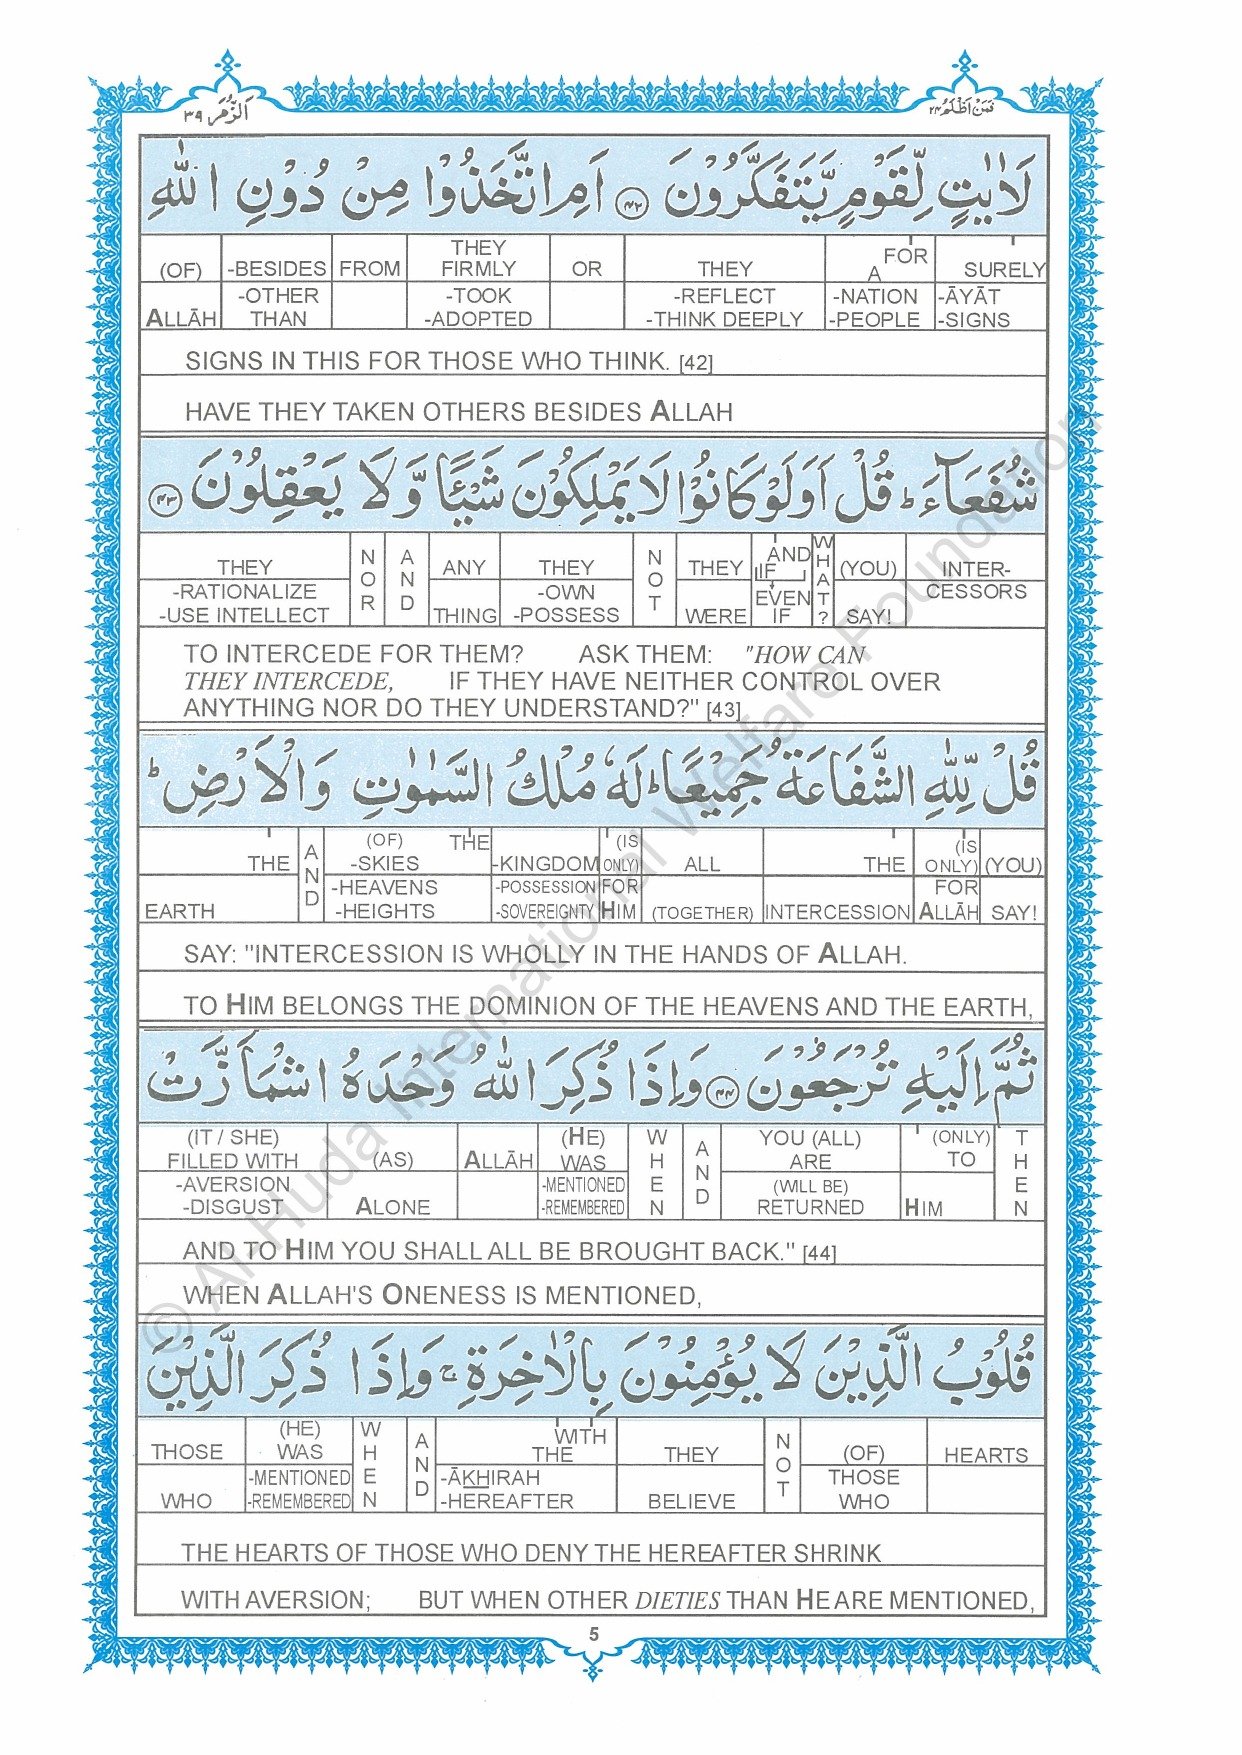 اَلزُّمَر ٣٩
فَمَنْ اَظْلَمُ ٢٤
لَاٰيٰتٍ لِّقَوْمٍ يَّتَفَكَّرُوْنَ ﴿٤٢﴾ اَمِ اتَّخَذُوْا مِنْ دُوْنِ اللّٰهِ
(OF) -BESIDES FROM THEY FIRMLY OR THEY FOR A SURELY
ALLĀH -OTHER THAN -TOOK -ADOPTED -REFLECT -THINK DEEPLY -NATION -PEOPLE -ĀYĀT -SIGNS
SIGNS IN THIS FOR THOSE WHO THINK. [42]
HAVE THEY TAKEN OTHERS BESIDES ALLAH
شُفَعَآءَ ؕ قُلْ اَوَلَوْ كَانُوْا لَا يَمْلِكُوْنَ شَيْـًٔا وَّلَا يَعْقِلُوْنَ ﴿٤٣﴾
THEY NOR AND ANY THEY NOT THEY AND IF WHAT? (YOU) INTER-
-RATIONALIZE -USE INTELLECT THING -OWN -POSSESS WERE EVEN IF SAY! CESSORS
TO INTERCEDE FOR THEM? ASK THEM: "HOW CAN
THEY INTERCEDE, IF THEY HAVE NEITHER CONTROL OVER
ANYTHING NOR DO THEY UNDERSTAND?" [43]
قُلْ لِّلّٰهِ الشَّفَاعَةُ جَمِيْعًا ؕ لَهٗ مُلْكُ السَّمٰوٰتِ وَالْاَرْضِ ؕ
THE AND (OF) THE -SKIES -KINGDOM (IS ONLY) ALL THE (IS ONLY) (YOU)
EARTH -HEAVENS -HEIGHTS -POSSESSION -SOVEREIGNTY FOR HIM (TOGETHER) INTERCESSION FOR ALLĀH SAY!
SAY: "INTERCESSION IS WHOLLY IN THE HANDS OF ALLAH.
TO HIM BELONGS THE DOMINION OF THE HEAVENS AND THE EARTH,
ثُمَّ اِلَيْهِ تُرْجَعُوْنَ ﴿٤٤﴾ وَاِذَا ذُكِرَ اللّٰهُ وَحْدَهُ اشْمَاَزَّتْ
(IT / SHE) FILLED WITH (AS) ALLĀH (HE) WAS WHEN AND YOU (ALL) ARE (ONLY) TO THEN
-AVERSION -DISGUST ALONE -MENTIONED -REMEMBERED (WILL BE) RETURNED HIM
AND TO HIM YOU SHALL ALL BE BROUGHT BACK." [44]
WHEN ALLAH'S ONENESS IS MENTIONED,
قُلُوْبُ الَّذِيْنَ لَا يُؤْمِنُوْنَ بِالْاٰخِرَةِ ۚ وَاِذَا ذُكِرَ الَّذِيْنَ
THOSE (HE) WAS WHEN AND WITH THE THEY NOT (OF) HEARTS
WHO -MENTIONED -REMEMBERED -ĀKHIRAH -HEREAFTER BELIEVE THOSE WHO
THE HEARTS OF THOSE WHO DENY THE HEREAFTER SHRINK
WITH AVERSION; BUT WHEN OTHER DIETIES THAN HE ARE MENTIONED,
5
© Al-Huda International Welfare Foundation